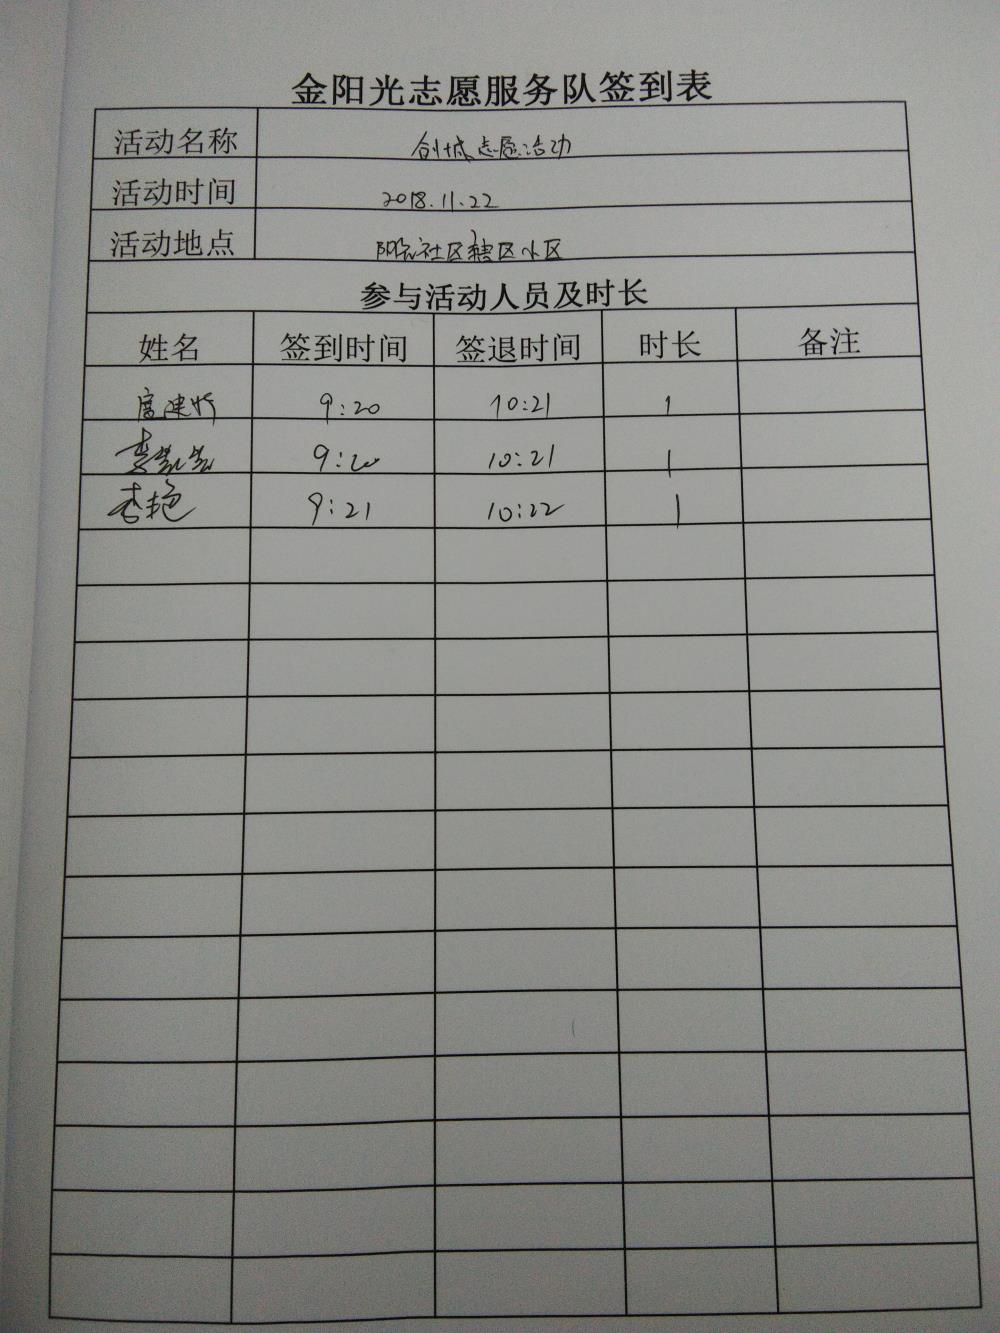 金阳光志愿服务队签到表
活动名称 创城志愿活动
活动时间 2018.11.22
活动地点 社区辖区小区
参与活动人员及时长
姓名 签到时间 签退时间 时长 备注
9:20 10:21 1
李 9:20 10:21 1
李艳 9:21 10:22 1